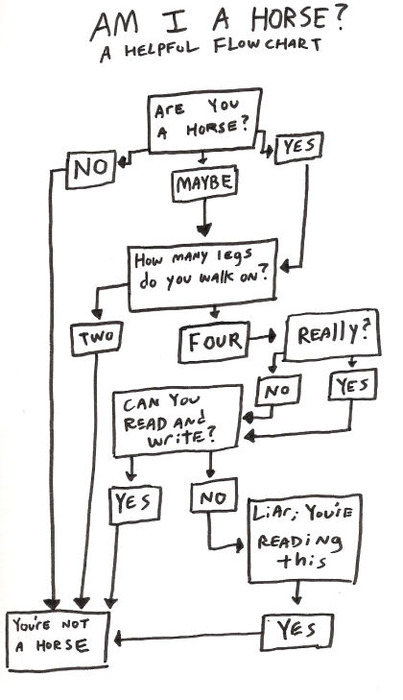 AM I A HORSE?
A HELPFUL FLOWCHART
ARE YOU
A HORSE?
NO
YES
MAYBE
How MANY legs
do you walk on?
TWO
FOUR
REAlly?
NO
YES
CAN YOU
READ AND
WRITE?
YES
NO
LiAr; You're
READiNg
this
YES
You're NOT
A HORSE